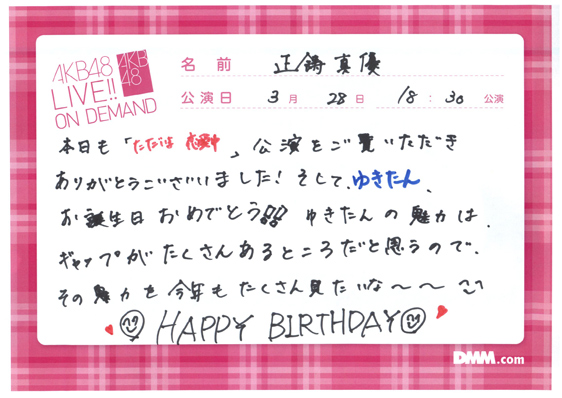 AKB48
LIVE!!
ON DEMAND
AKB
48
名前 正鋳真優
公演日 3月 28日 18:30 公演
本日も「ただいま 恋愛中」公演をご覧いただき
ありがとうございました! そして、ゆきたん、
お誕生日おめでとう!! ゆきたんの魅力は、
ギャップがたくさんあるところだと思うので、
その魅力を今年もたくさん見たいな〜〜
HAPPY BIRTHDAY
DMM.com